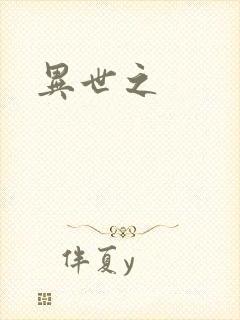 異世之
伴夏y